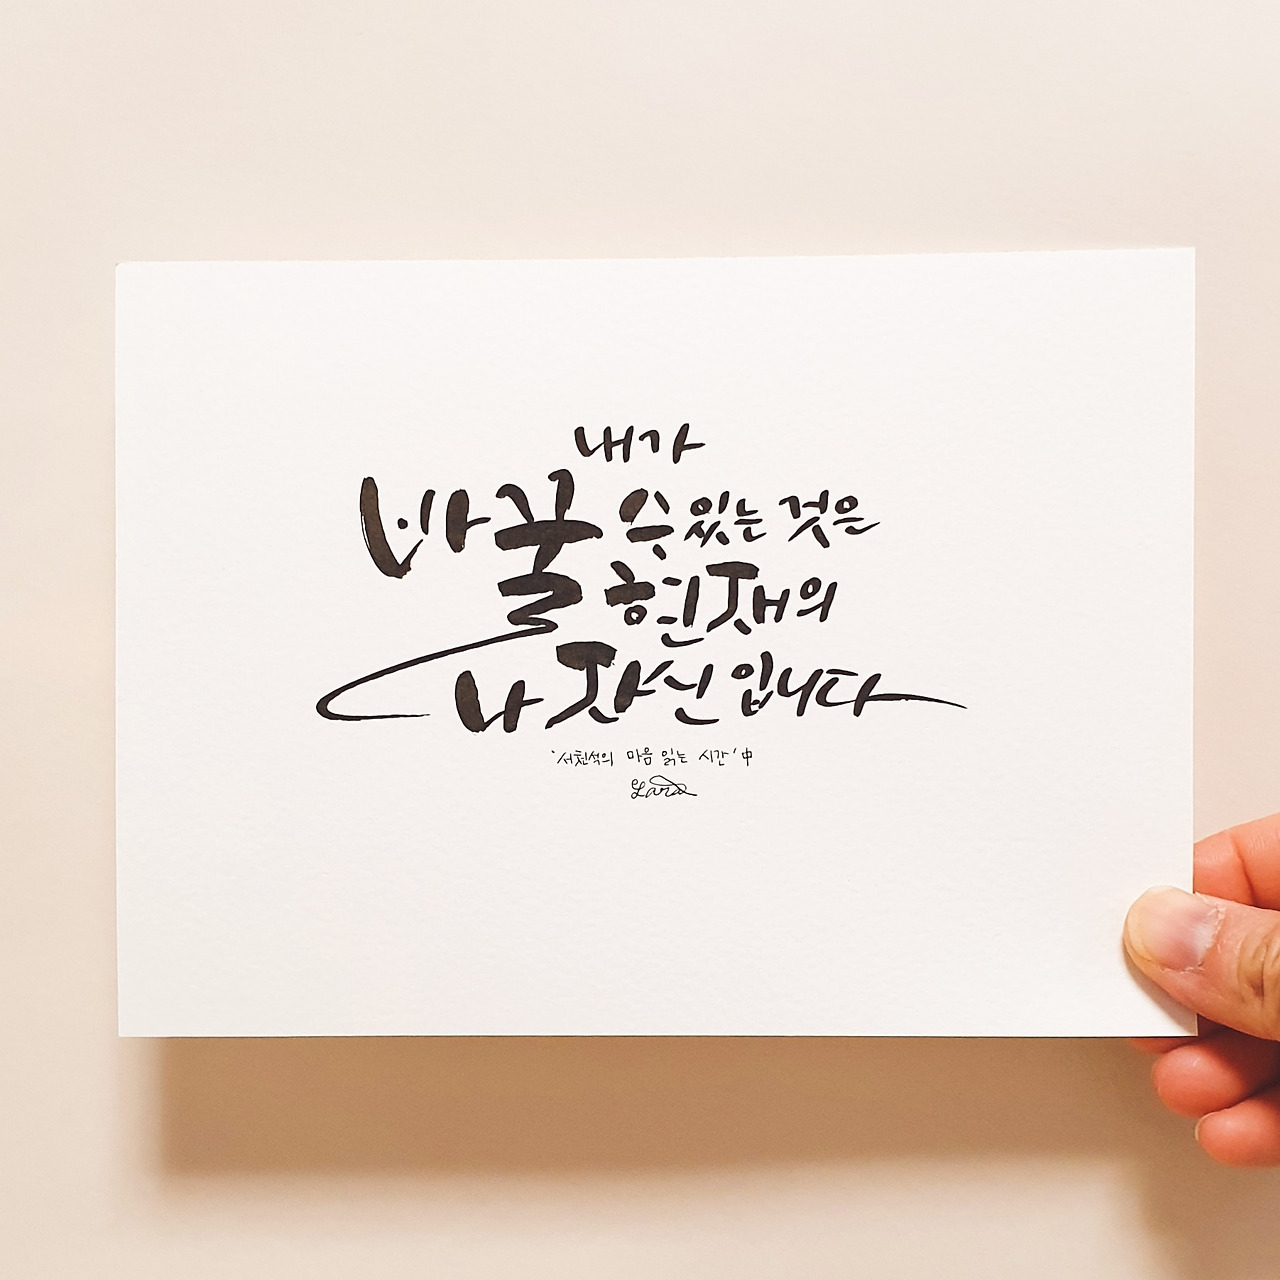 내가
바꿀 수 있는 것은
현재의
나 자신입니다
'서천석의 마음 읽는 시간' 中
Lara